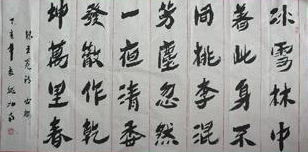 冰雪林中
著此身不
同桃李混
芳塵忽然
一夜清香
發散作乾
坤萬里春
王冕詩